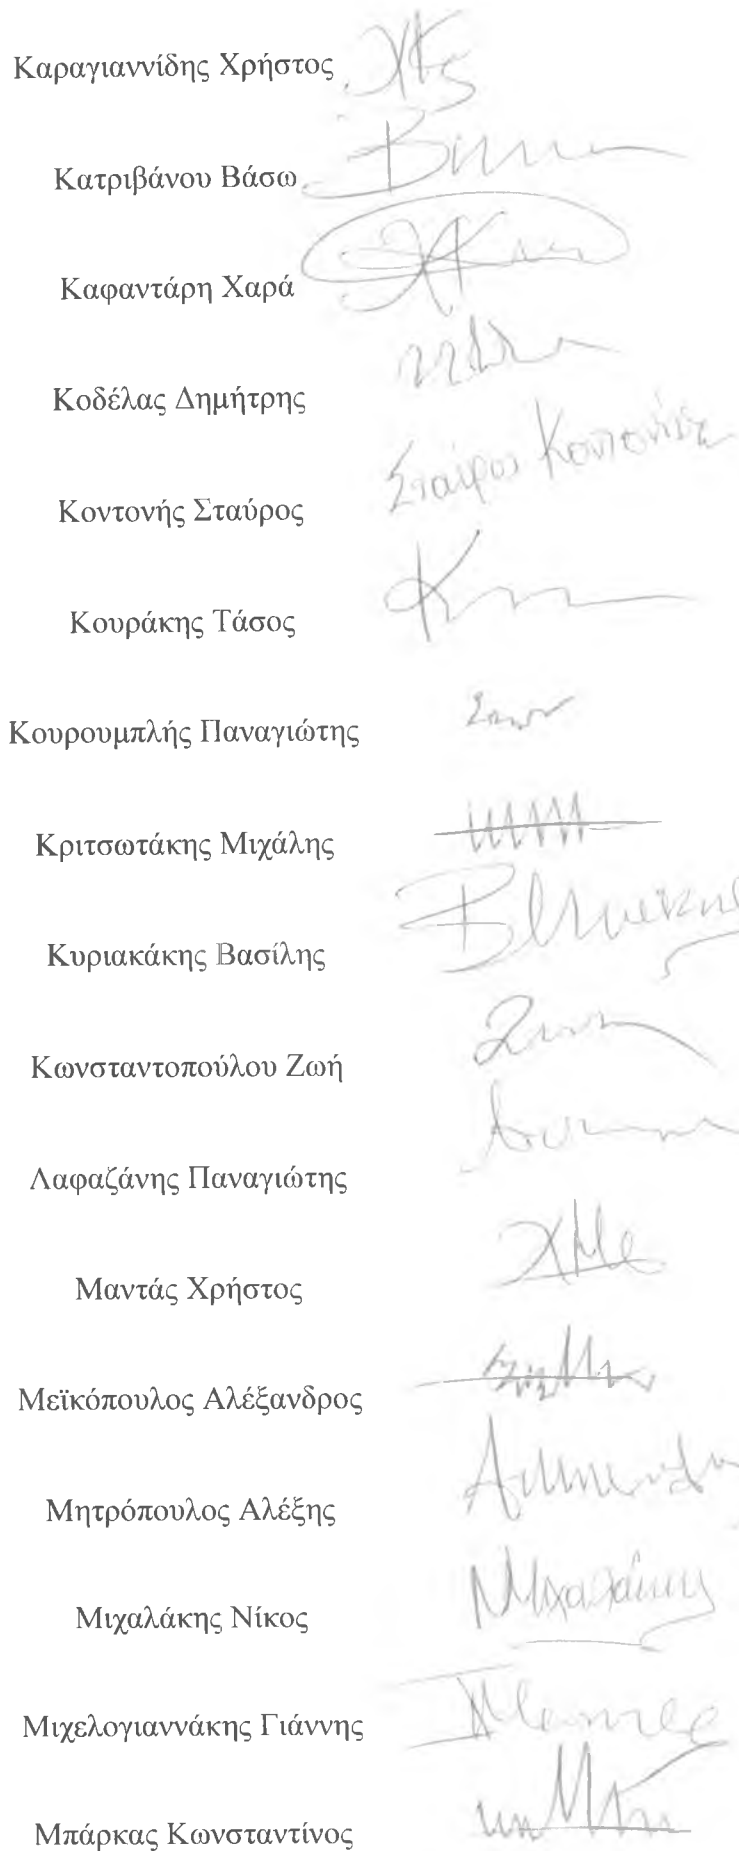 Καραγιαννίδης Χρήστος
Κατριβάνου Βάσω
Καφαντάρη Χαρά
Κοδέλας Δημήτρης
Κοντονής Σταύρος Σταύρος Κοντονής
Κουράκης Τάσος
Κουρουμπλής Παναγιώτης
Κριτσωτάκης Μιχάλης
Κυριακάκης Βασίλης
Κωνσταντοπούλου Ζωή
Λαφαζάνης Παναγιώτης
Μαντάς Χρήστος
Μεϊκόπουλος Αλέξανδρος
Μητρόπουλος Αλέξης
Μιχαλάκης Νίκος
Μιχελογιαννάκης Γιάννης
Μπάρκας Κωνσταντίνος